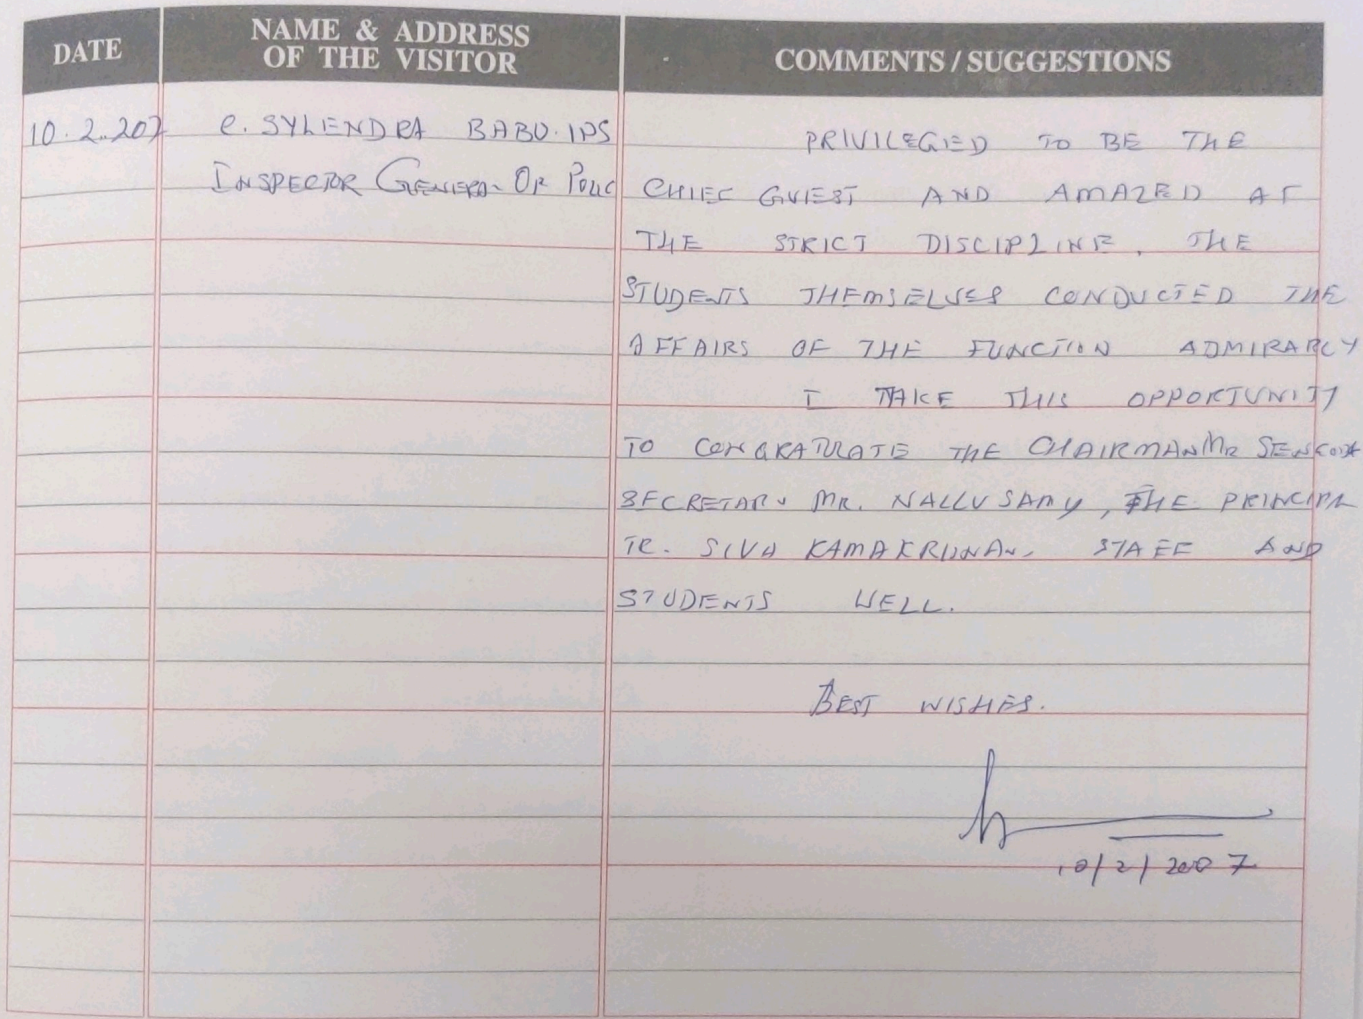 DATE
NAME & ADDRESS
OF THE VISITOR
COMMENTS / SUGGESTIONS
10.2.207
C. SYLENDRA BABU. IPS
INSPECTOR GENERAL OF POLIC
PRIVILEGED TO BE THE
CHIEF GUEST AND AMAZED AT
THE STRICT DISCIPLINE. THE
STUDENTS THEMSELVES CONDUCTED THE
AFFAIRS OF THE FUNCTION ADMIRABLY
I TAKE THIS OPPORTUNITY
TO CONGRATULATE THE CHAIRMAN MR
SECRETARY MR. NALLUSAMY, THE PRINCIPAL
TR. SIVA RAMAKRISHNAN, STAFF AND
STUDENTS WELL.
BEST WISHES.
10/2/2007